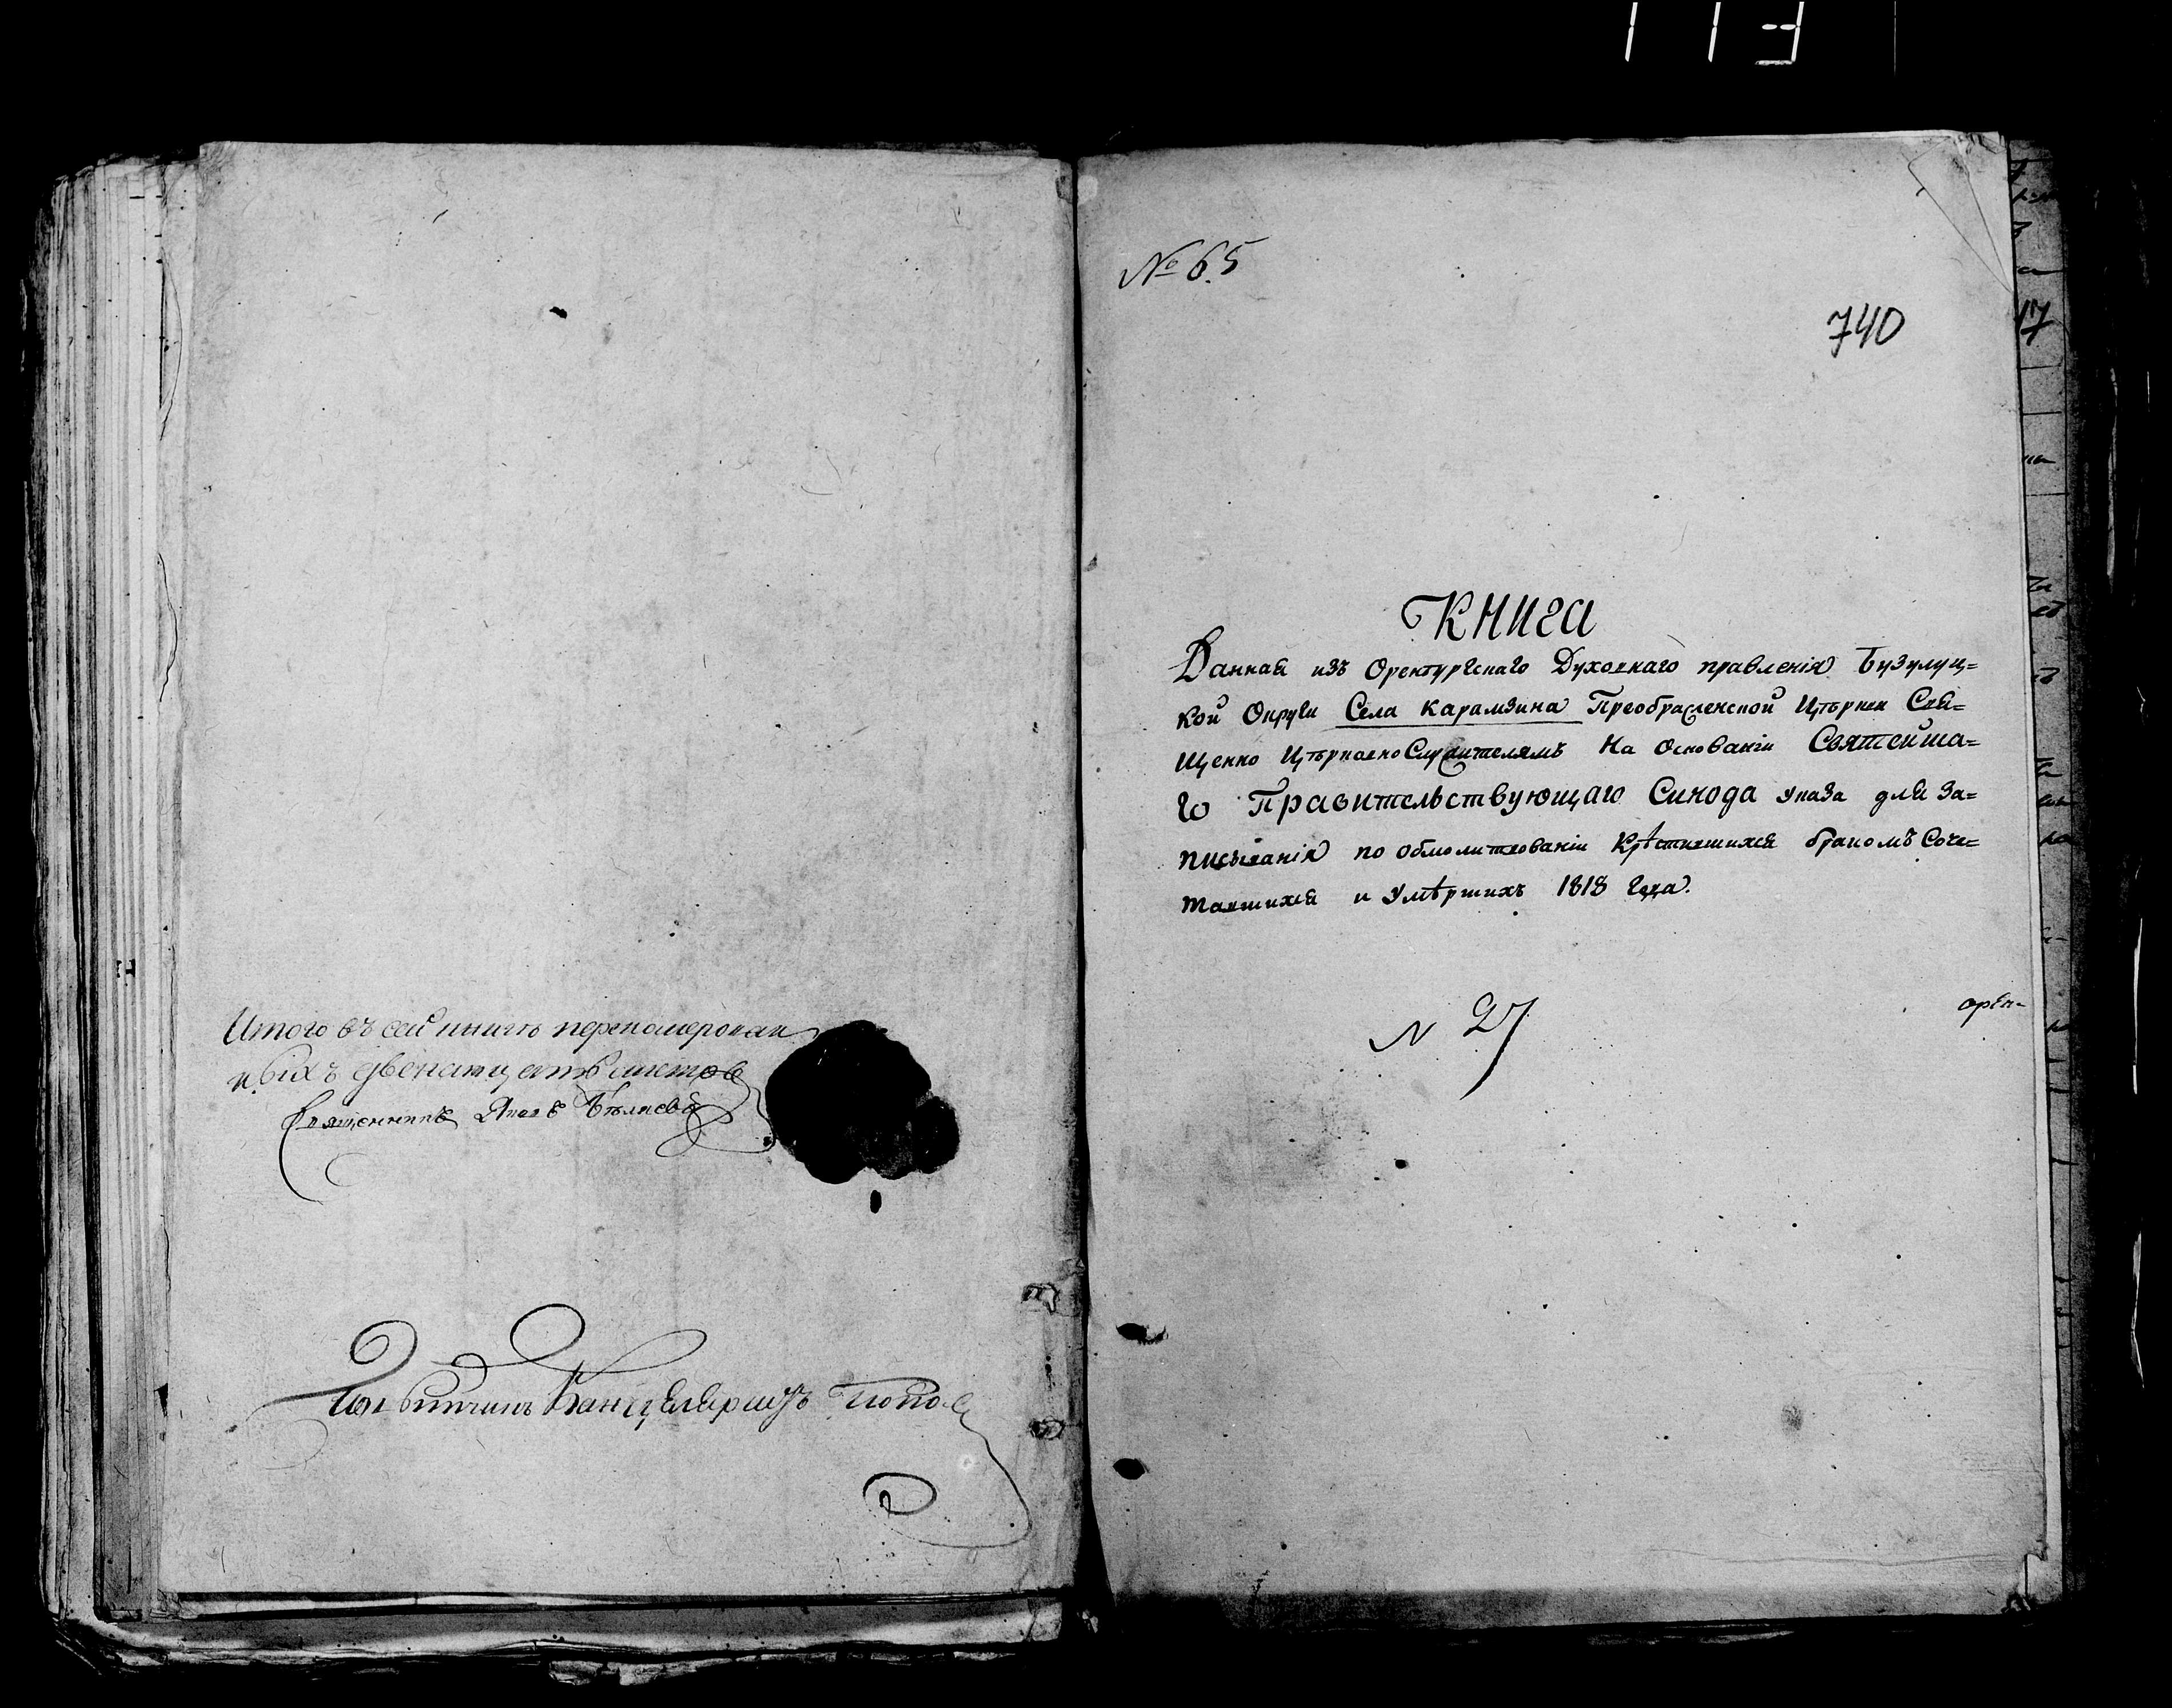 113
Итого въ сей книгѣ переномерован
ныхъ двенатцеть листов
Священникъ Яковъ Бѣляевъ
Канцеляристъ Попов
№ 65
740
Книга
Данная изъ Оренбургскаго Духовнаго правленія Бузулуц=
кой Округи Села Карамзина Преображенской Цѣркви Свя=
щенно Цѣрковно Служителямъ На Основаніи Святейша=
го Правительствующаго Синода указа для За=
писыванія по обмолитвованіи Крѣстившихся бракомъ Соче=
тавшихся и Умѣршихъ 1818 Года.
N 27
орен-
17